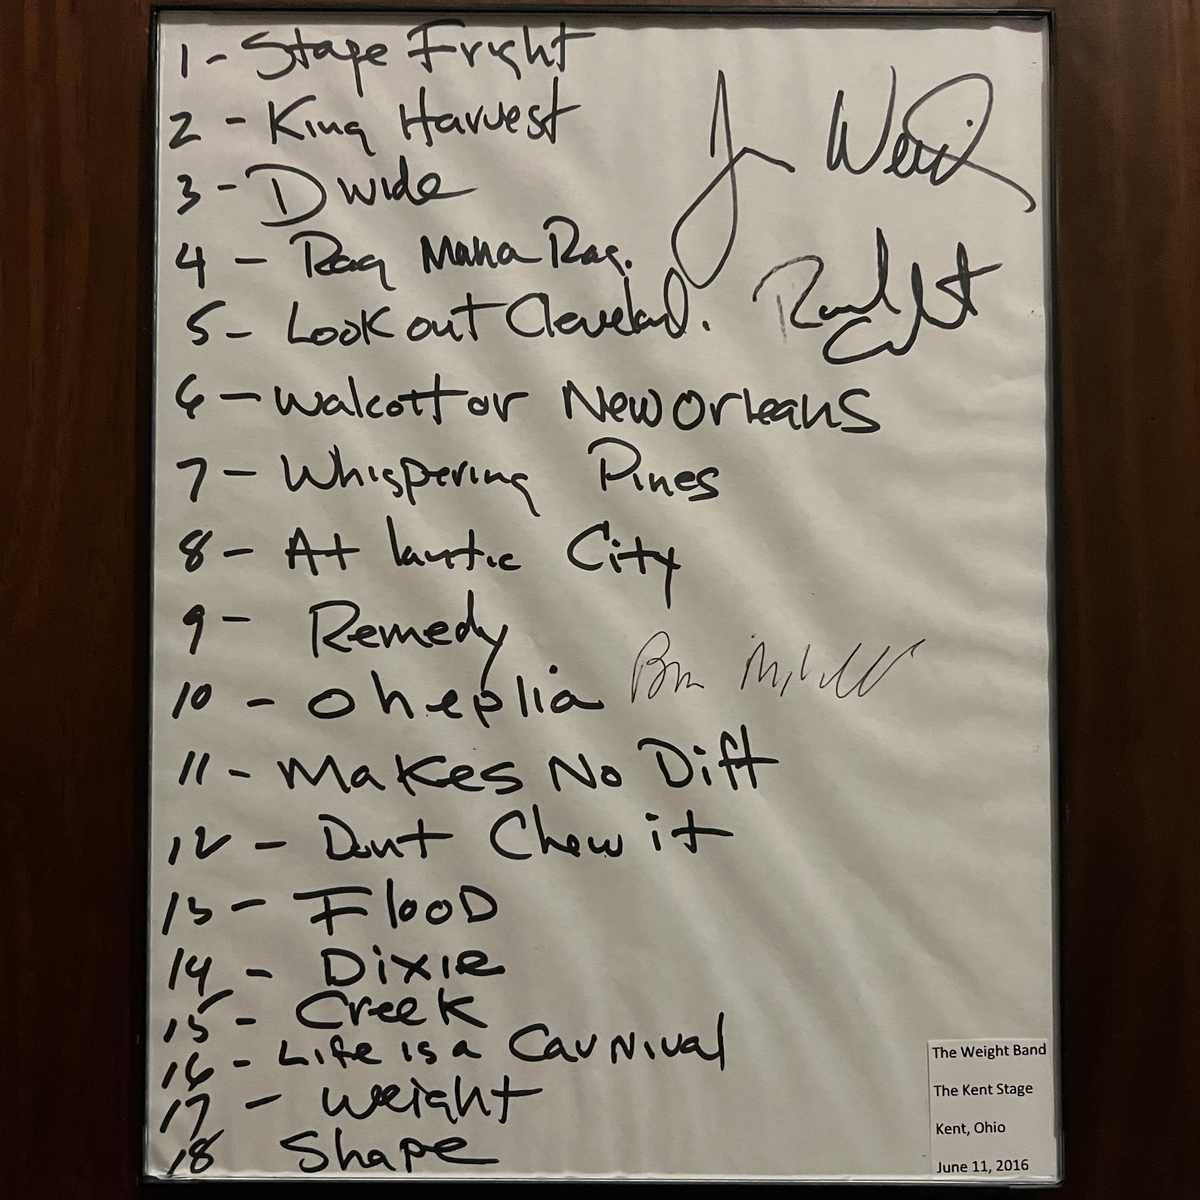 1 - Stage Fright
2 - King Harvest
3 - D wide
4 - Rag Mama Rag.
5 - Look out Cleveland.
6 - Walcott or New Orleans
7 - Whispering Pines
8 - Atlantic City
9 - Remedy
10 - Oheplia
11 - Makes No Diff
12 - Dont Chew it
13 - Flood
14 - Dixie
15 - Creek
16 - Life is a Carnival
17 - Weight
18 Shape
Jim Weider
The Weight Band
The Kent Stage
Kent, Ohio
June 11, 2016